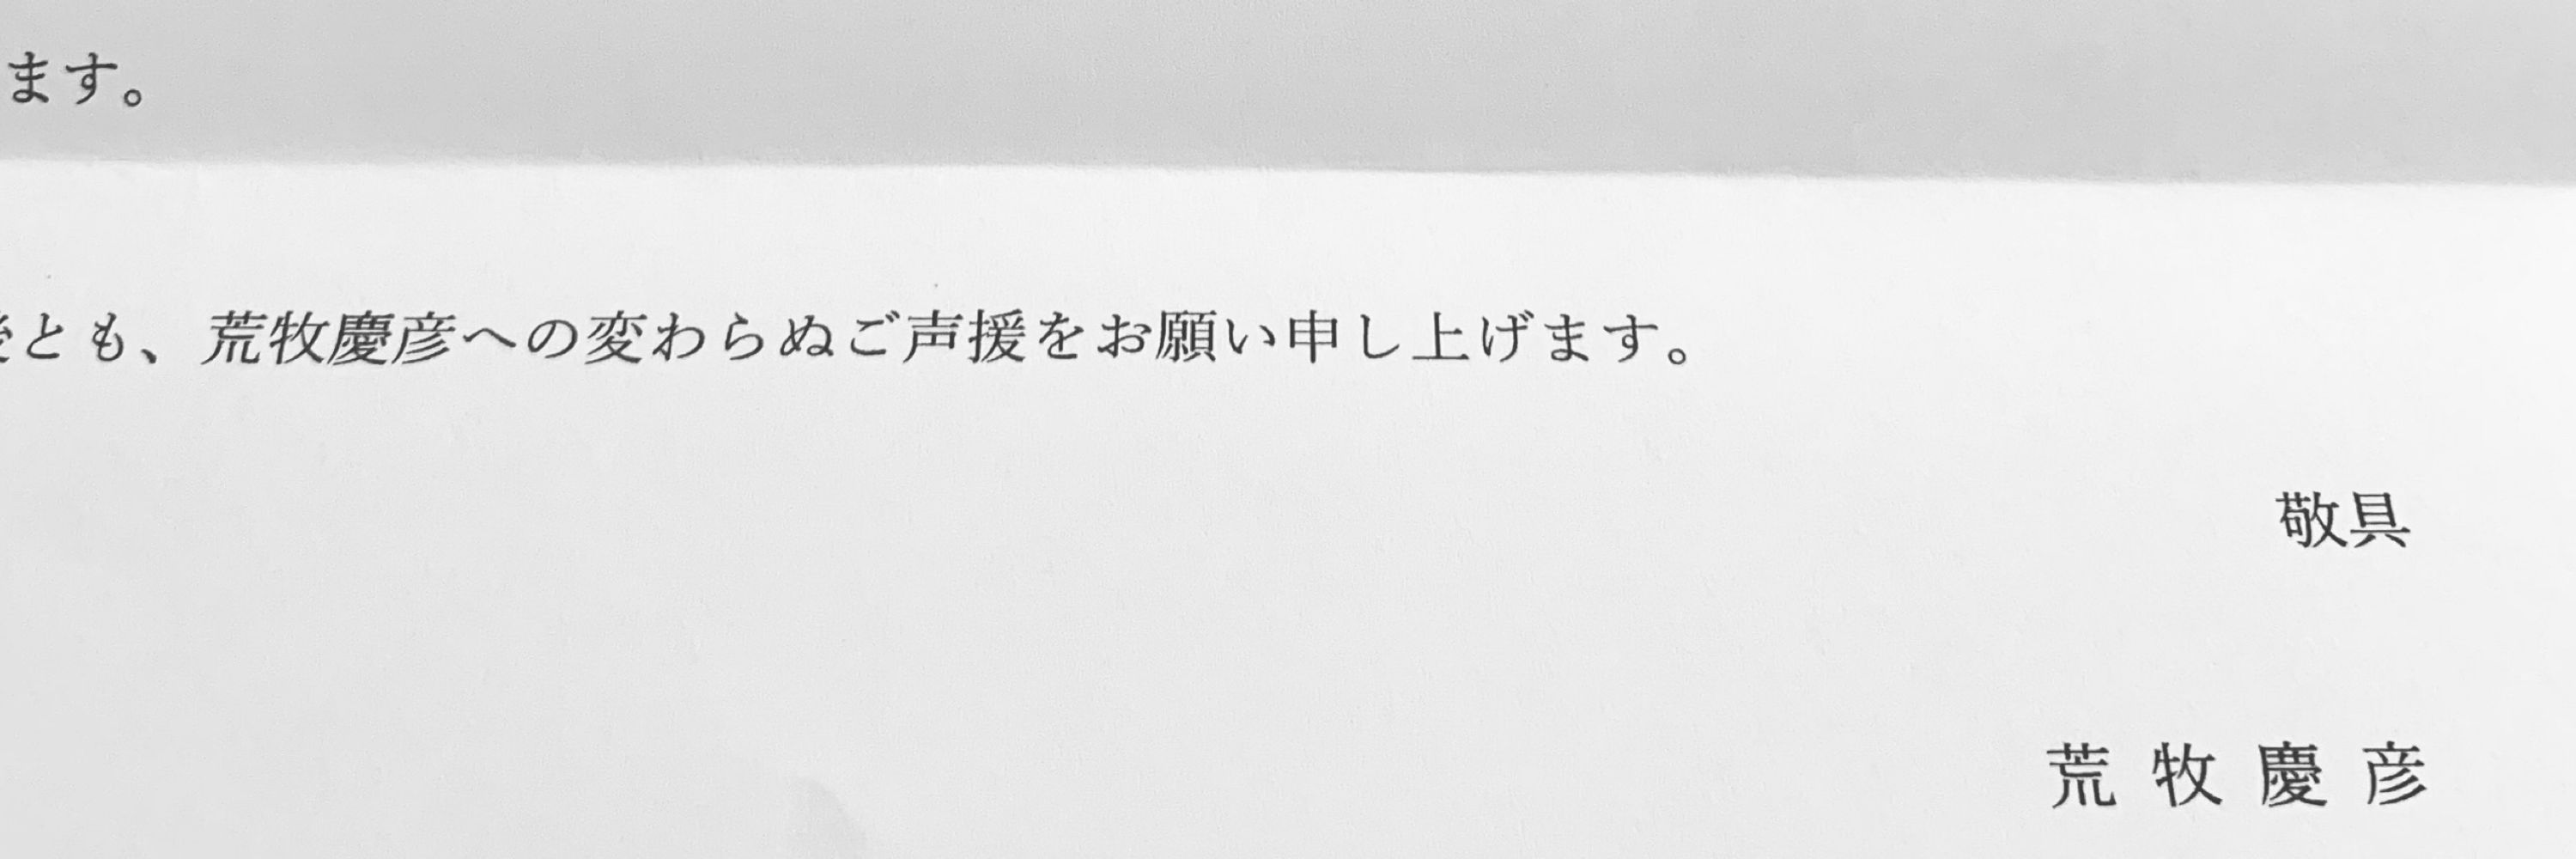 ます。
とも、荒牧慶彦への変わらぬご声援をお願い申し上げます。
敬具
荒牧慶彦